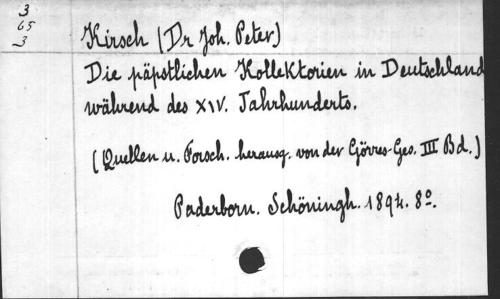 3
65
3
Kirsch (Dr Joh. Peter)
Die päpstlichen Kollektorien in Deutschland
während des XIV. Jahrhunderts.
(Quellen u. Forsch. herausg. von der Görres-Ges. III Bd.)
Paderborn. Schöningh. 1894. 8º.